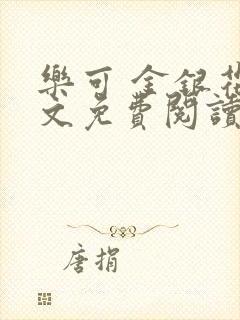 樂可 金銀花
文免費閱讀
唐捐